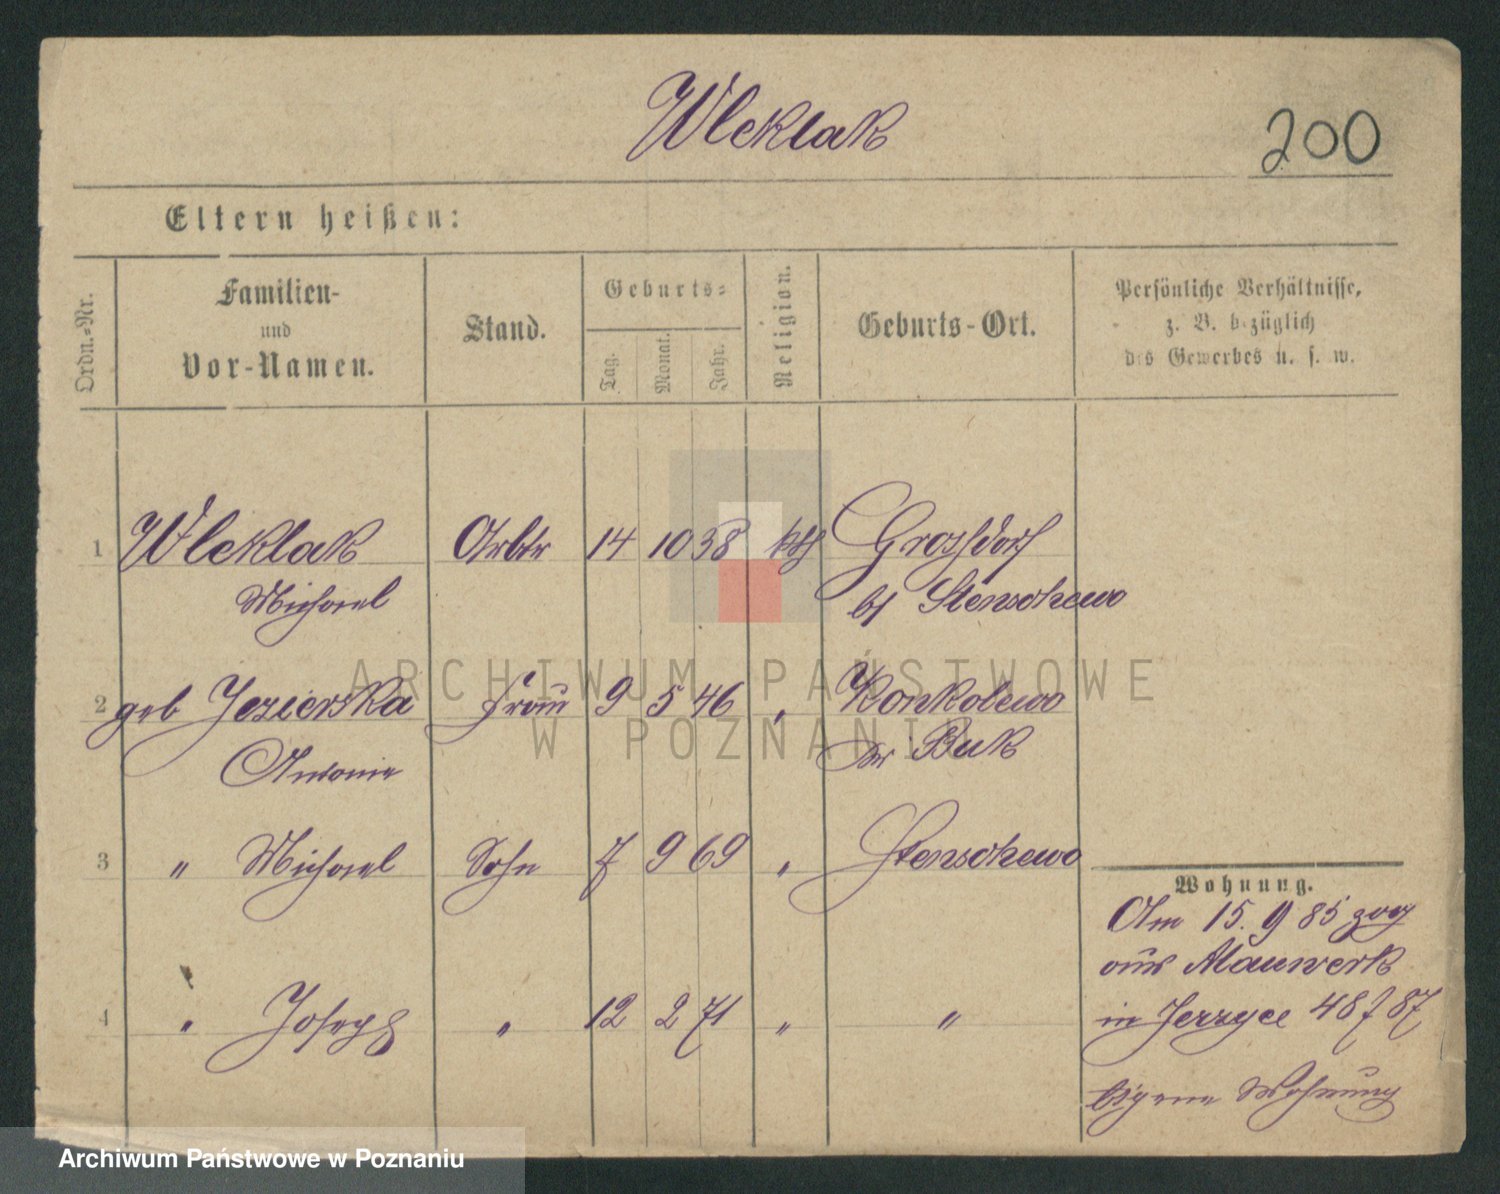 Wleklak
200
Eltern heißen:
Ordn.-Nr.
Familien-
und
Vor-Namen.
Stand.
Geburts-
Tag.
Monat.
Jahr.
Religion.
Geburts-Ort.
Persönliche Verhältnisse,
z. B. bezüglich
des Gewerbes u. s. w.
1 Wleklak Arbtr 14 10 38 kth Grossdorf
Michael bf Stenschewo
2 geb Jezierska Frau 9 5 46 " Konkolewo
Antonie Kr Buk
3 " Michael Sohn 7 9 69 " Stenschewo
4 " Joseph " 12 2 71 " "
Wohnung.
Am 15. 9 85 zog
aus
in Jerzyce 48
eigene Wohnung
ARCHIWUM PAŃSTWOWE
W POZNANIU
Archiwum Państwowe w Poznaniu